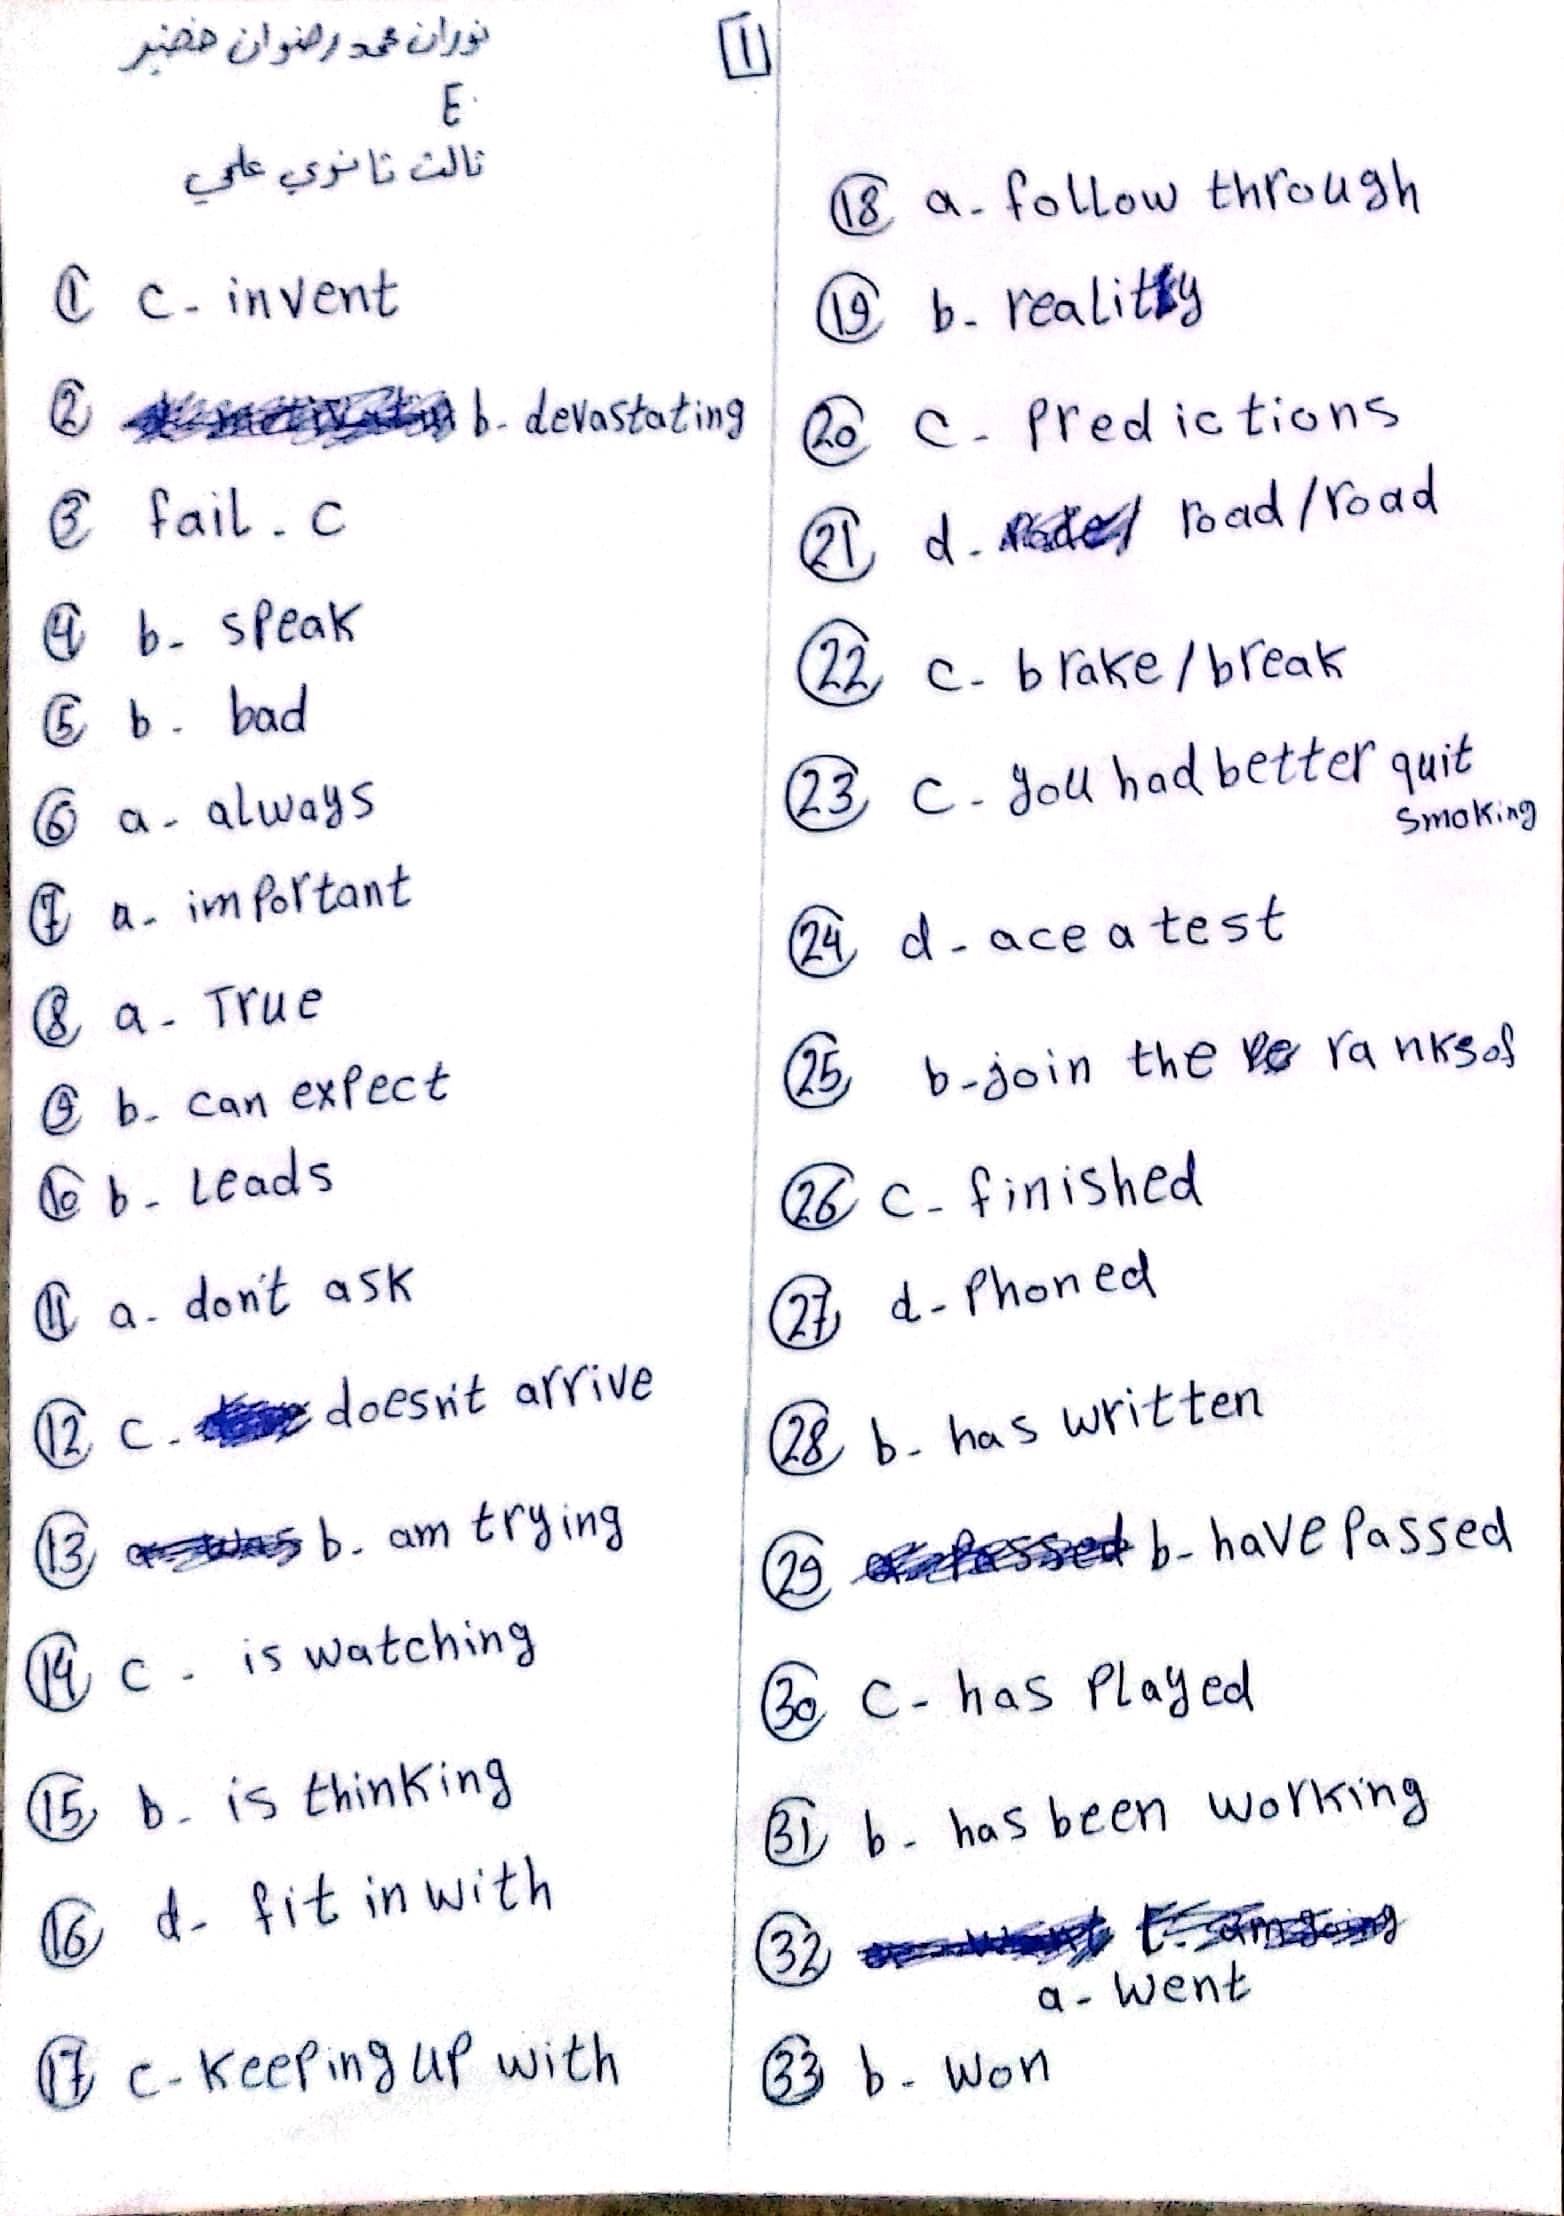 نوران محمد رضوان خضير
1
E
ثالث ثانوي علمي
1 c - invent
2 b - devastating
3 fail - c
4 b - speak
5 b - bad
6 a - always
7 a - important
8 a - True
9 b - can expect
10 b - Leads
11 a - don't ask
12 c - doesn't arrive
13 b - am trying
14 c - is watching
15 b - is thinking
16 d - fit in with
17 c - Keeping up with
18 a - follow through
19 b - reality
20 c - predictions
21 d - road / road
22 c - brake / break
23 c - you had better quit
smoking
24 d - ace a test
25 b - join the ranks of
26 c - finished
27 d - phoned
28 b - has written
29 b - have passed
30 c - has played
31 b - has been working
32
a - went
33 b - won